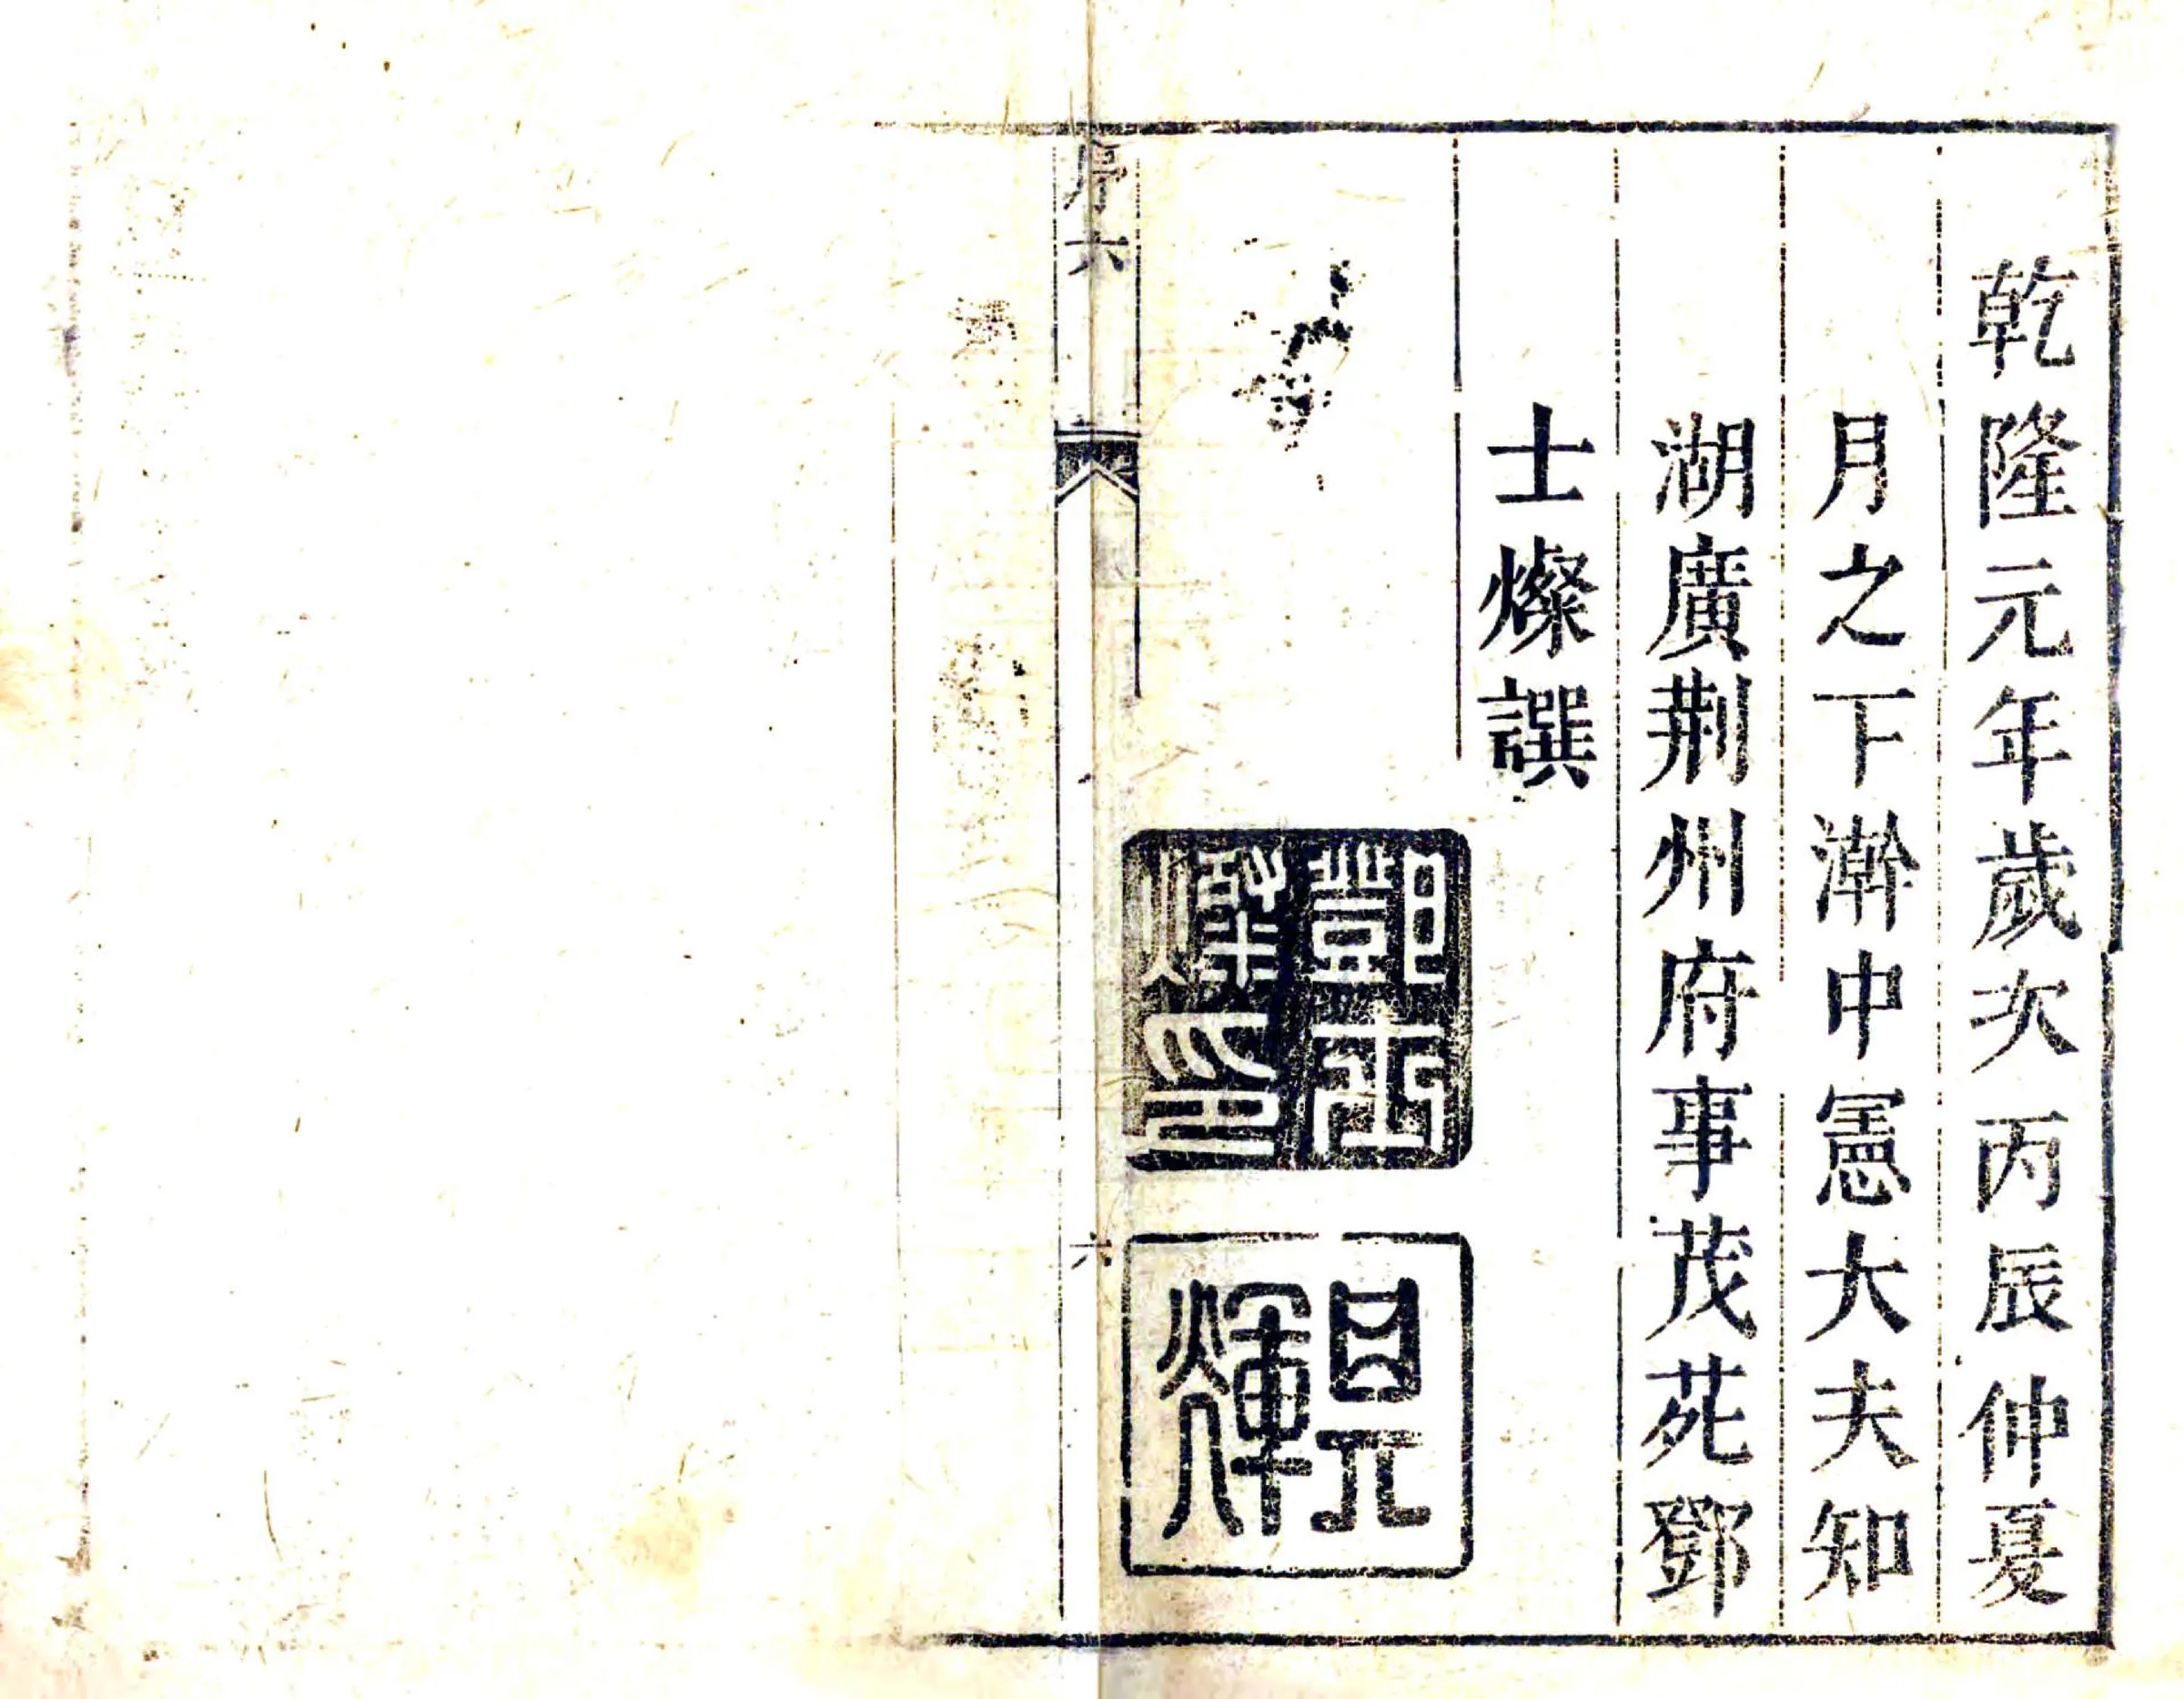 乾隆元年歲次丙辰仲夏
月之下澣中憲大夫知
湖廣荆州府事茂苑鄧
士燦譔
鄧士燦印
序六
六